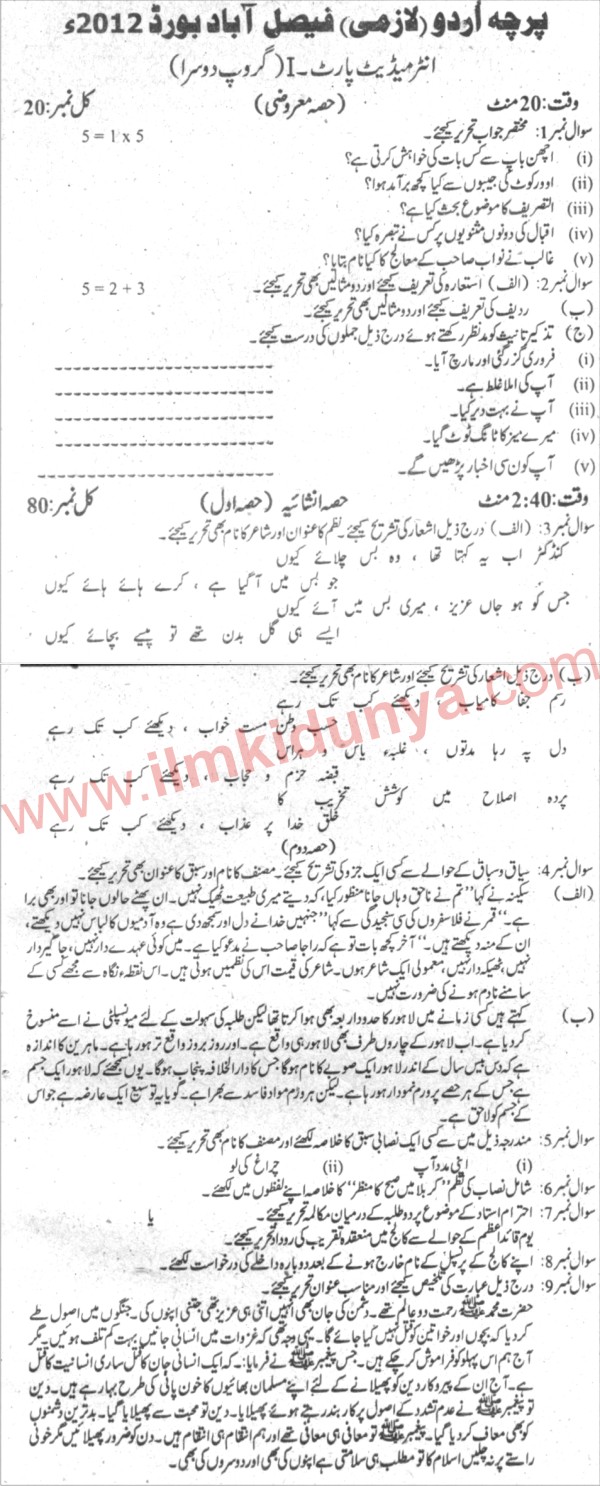 پرچہ اُردو (لازمی) فیصل آباد بورڈ 2012ء
انٹرمیڈیٹ پارٹ۔I (گروپ دوسرا)
وقت: 20 منٹ (حصہ معروضی) کل نمبر: 20
سوال نمبر 1: مختصر جواب تحریر کیجئے۔ 5 = 1 x 5
(i) اچھن باپ سے کس بات کی خواہش کرتی ہے؟
(ii) اوورکوٹ کی جیبوں سے کیا کچھ برآمد ہوا؟
(iii) التصریف کا موضوع بحث کیا ہے؟
(iv) اقبال کی دونوں مثنویوں پر کس نے تبصرہ کیا؟
(v) غالب نے نواب صاحب کے معالج کا کیا نام بتایا؟
سوال نمبر 2: (الف) استعارہ کی تعریف کیجئے اور دو مثالیں بھی تحریر کیجئے۔ 5 = 2 + 3
(ب) ردیف کی تعریف کیجئے اور دو مثالیں بھی تحریر کیجئے۔
(ج) تذکیر تانیث کو مدنظر رکھتے ہوئے درج ذیل جملوں کی درست کیجئے۔
(i) فروری گزر گئی اور مارچ آیا۔
(ii) آپ کی املا غلط ہے۔
(iii) آپ نے بہت دیر کیا۔
(iv) میرے میز کا ٹانگ ٹوٹ گیا۔
(v) آپ کون سی اخبار پڑھیں گے۔
وقت: 2:40 منٹ حصہ انشائیہ (حصہ اول) کل نمبر: 80
سوال نمبر 3: (الف) درج ذیل اشعار کی تشریح کیجئے۔ نظم کا عنوان اور شاعر کا نام بھی تحریر کیجئے۔
کنڈکٹر اب یہ کہتا تھا ، وہ بس چلائے کیوں
جو بس میں آ گیا ہے ، کرے ہائے ہائے کیوں
جس کو ہو جاں عزیز ، میری بس میں آئے کیوں
ایسے ہی گل بدن تھے تو پیسے بچائے کیوں
(ب) درج ذیل اشعار کی تشریح کیجئے اور شاعر کا نام بھی تحریر کیجئے۔
رسم جفا کامیاب ، دیکھئے کب تک رہے
حب وطن مست خواب ، دیکھئے کب تک رہے
دل پہ رہا مدتوں ، غلبۂ یاس و ہراس
قبضہ حزم و حجاب ، دیکھئے کب تک رہے
پردہ اصلاح میں کوشش تخریب کا
خلق خدا پر عذاب ، دیکھئے کب تک رہے
(حصہ دوم)
سوال نمبر 4: سیاق و سباق کے حوالے سے کسی ایک جزو کی تشریح کیجئے۔ مصنف کا نام اور سبق کا عنوان بھی تحریر کیجئے۔
(الف) سکینہ نے کہا "تم نے ناحق وہاں جانا منظور کیا، کہہ دیتے میری طبیعت ٹھیک نہیں۔ ان پھٹے حالوں جانا تو اور بھی برا
ہے۔" قمر نے فلاسفروں کی سی سنجیدگی سے کہا "جنہیں خدا نے دل اور سمجھ دی ہے وہ آدمیوں کا لباس نہیں دیکھتے،
ان کے منہ دیکھتے ہیں۔" آخر کچھ بات تو ہے کہ راجا صاحب نے مدعو کیا ہے۔ میں کوئی عہدے دار نہیں، جاگیردار
نہیں، ٹھیکہ دار نہیں، معمولی ایک شاعر ہوں۔ شاعر کی قیمت اس کی نظمیں ہوتی ہیں۔ اس نقطہء نگاہ سے مجھے کسی کے
سامنے نادم ہونے کی ضرورت نہیں۔
(ب) کہتے ہیں کسی زمانے میں لاہور کا حدود اربعہ بھی ہوا کرتا تھا لیکن طلبہ کی سہولت کے لئے میونسپلٹی نے اسے منسوخ
کر دیا ہے۔ اب لاہور کے چاروں طرف بھی لاہور ہی واقع ہے۔ اور روز بروز واقع تر ہو رہا ہے۔ ماہرین کا اندازہ
ہے کہ دس بیس سال کے اندر لاہور ایک صوبے کا نام ہوگا جس کا دارالخلافہ پنجاب ہوگا۔ یوں سمجھئے کہ لاہور ایک جسم
ہے جس کے ہر حصے پر ورم نمودار ہو رہا ہے۔ لیکن ہر ورم مواد فاسد سے بھرا ہے۔ گویا یہ توسیع ایک عارضہ ہے جو اس
کے جسم کو لاحق ہے۔
سوال نمبر 5: مندرجہ ذیل میں سے کسی ایک نصابی سبق کا خلاصہ لکھئے اور مصنف کا نام بھی تحریر کیجئے۔
(i) اپنی مدد آپ (ii) چراغ کی لو
سوال نمبر 6: شامل نصاب کی نظم "کربلا میں صبح کا منظر" کا خلاصہ اپنے لفظوں میں لکھئے۔
سوال نمبر 7: احترام استاد کے موضوع پر دو طلبہ کے درمیان مکالمہ تحریر کیجئے۔ یا
یوم قائد اعظم کے حوالے سے کالج میں منعقدہ تقریب کی روداد تحریر کیجئے۔
سوال نمبر 8: اپنے کالج کے پرنسپل کے نام خارج ہونے کے بعد دوبارہ داخلے کی درخواست لکھئے۔
سوال نمبر 9: درج ذیل عبارت کی تلخیص کیجئے اور مناسب عنوان تحریر کیجئے۔
حضرت محمد ﷺ رحمت دو عالم تھے۔ دشمن کی جان بھی انہیں اتنی ہی عزیز تھی جتنی اپنوں کی۔ جنگوں میں اصول طے
کر دیا کہ بچوں اور خواتین کو قتل نہیں کیا جائے گا۔ یہی وجہ تھی کہ غزوات میں انسانی جانیں بہت کم تلف ہوئیں۔ مگر
آج ہم اس پہلو کو فراموش کر چکے ہیں۔ جس پیغمبر ﷺ نے فرمایا: کہ ایک انسانی جان کا قتل ساری انسانیت کا قتل
ہے۔ آج ان کے پیروکار دین کو پھیلانے کے لئے اپنے مسلمان بھائیوں کا خون پانی کی طرح بہا رہے ہیں۔ دین
تو پیغمبر ﷺ نے عدم تشدد کے اصول پر کاربند رہتے ہوئے پھیلایا۔ دین تو محبت سے پھیلایا گیا۔ بدترین دشمنوں
کو بھی معاف کر دیا گیا۔ پیغمبر ﷺ تو معافی ہی معافی تھے اور ہم انتقام ہی انتقام ہیں۔ دن کو ضرور پھیلائیں مگر خونی
راستے پر نہ چلیں اسلام کا تو مطلب ہی سلامتی ہے اپنوں کی بھی اور دوسروں کی بھی۔
www.ilmkidunya.com